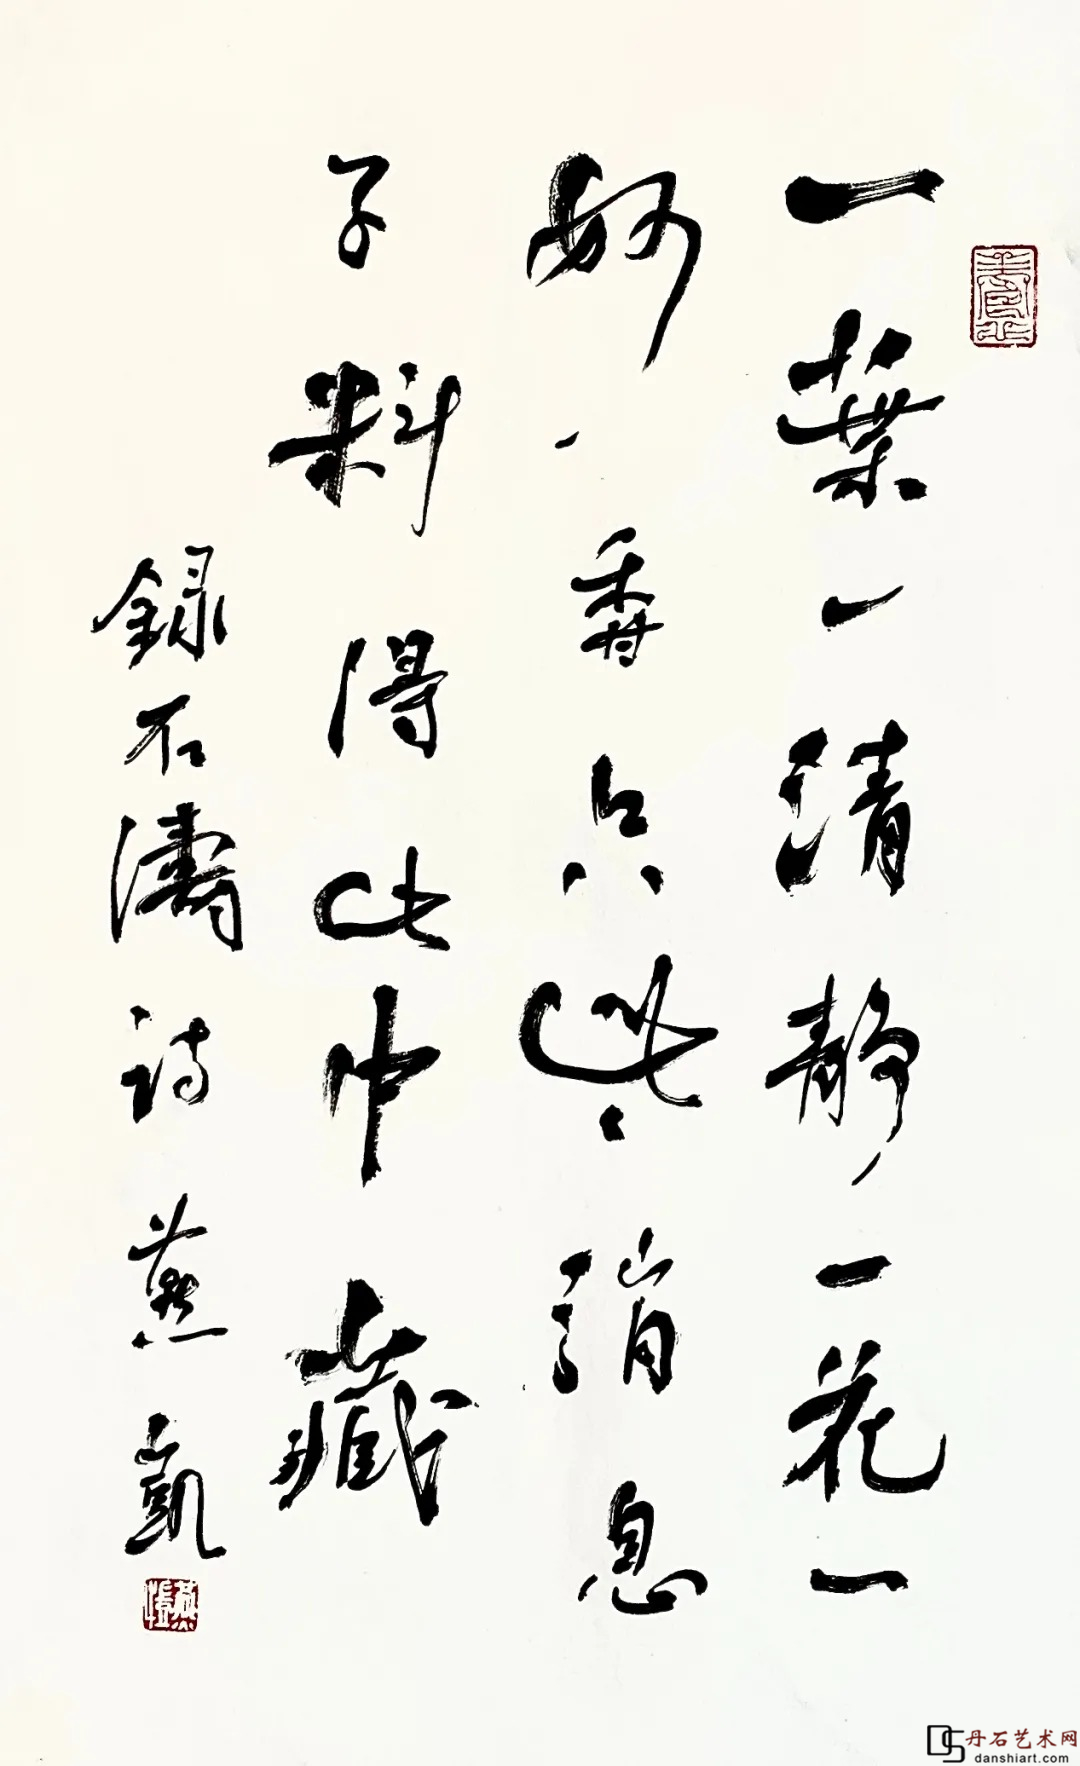 一葉一清靜一花一
妙香只些消息
子料得此中藏
録石濤詩燕凱
DS丹石艺术网
danshiart.com